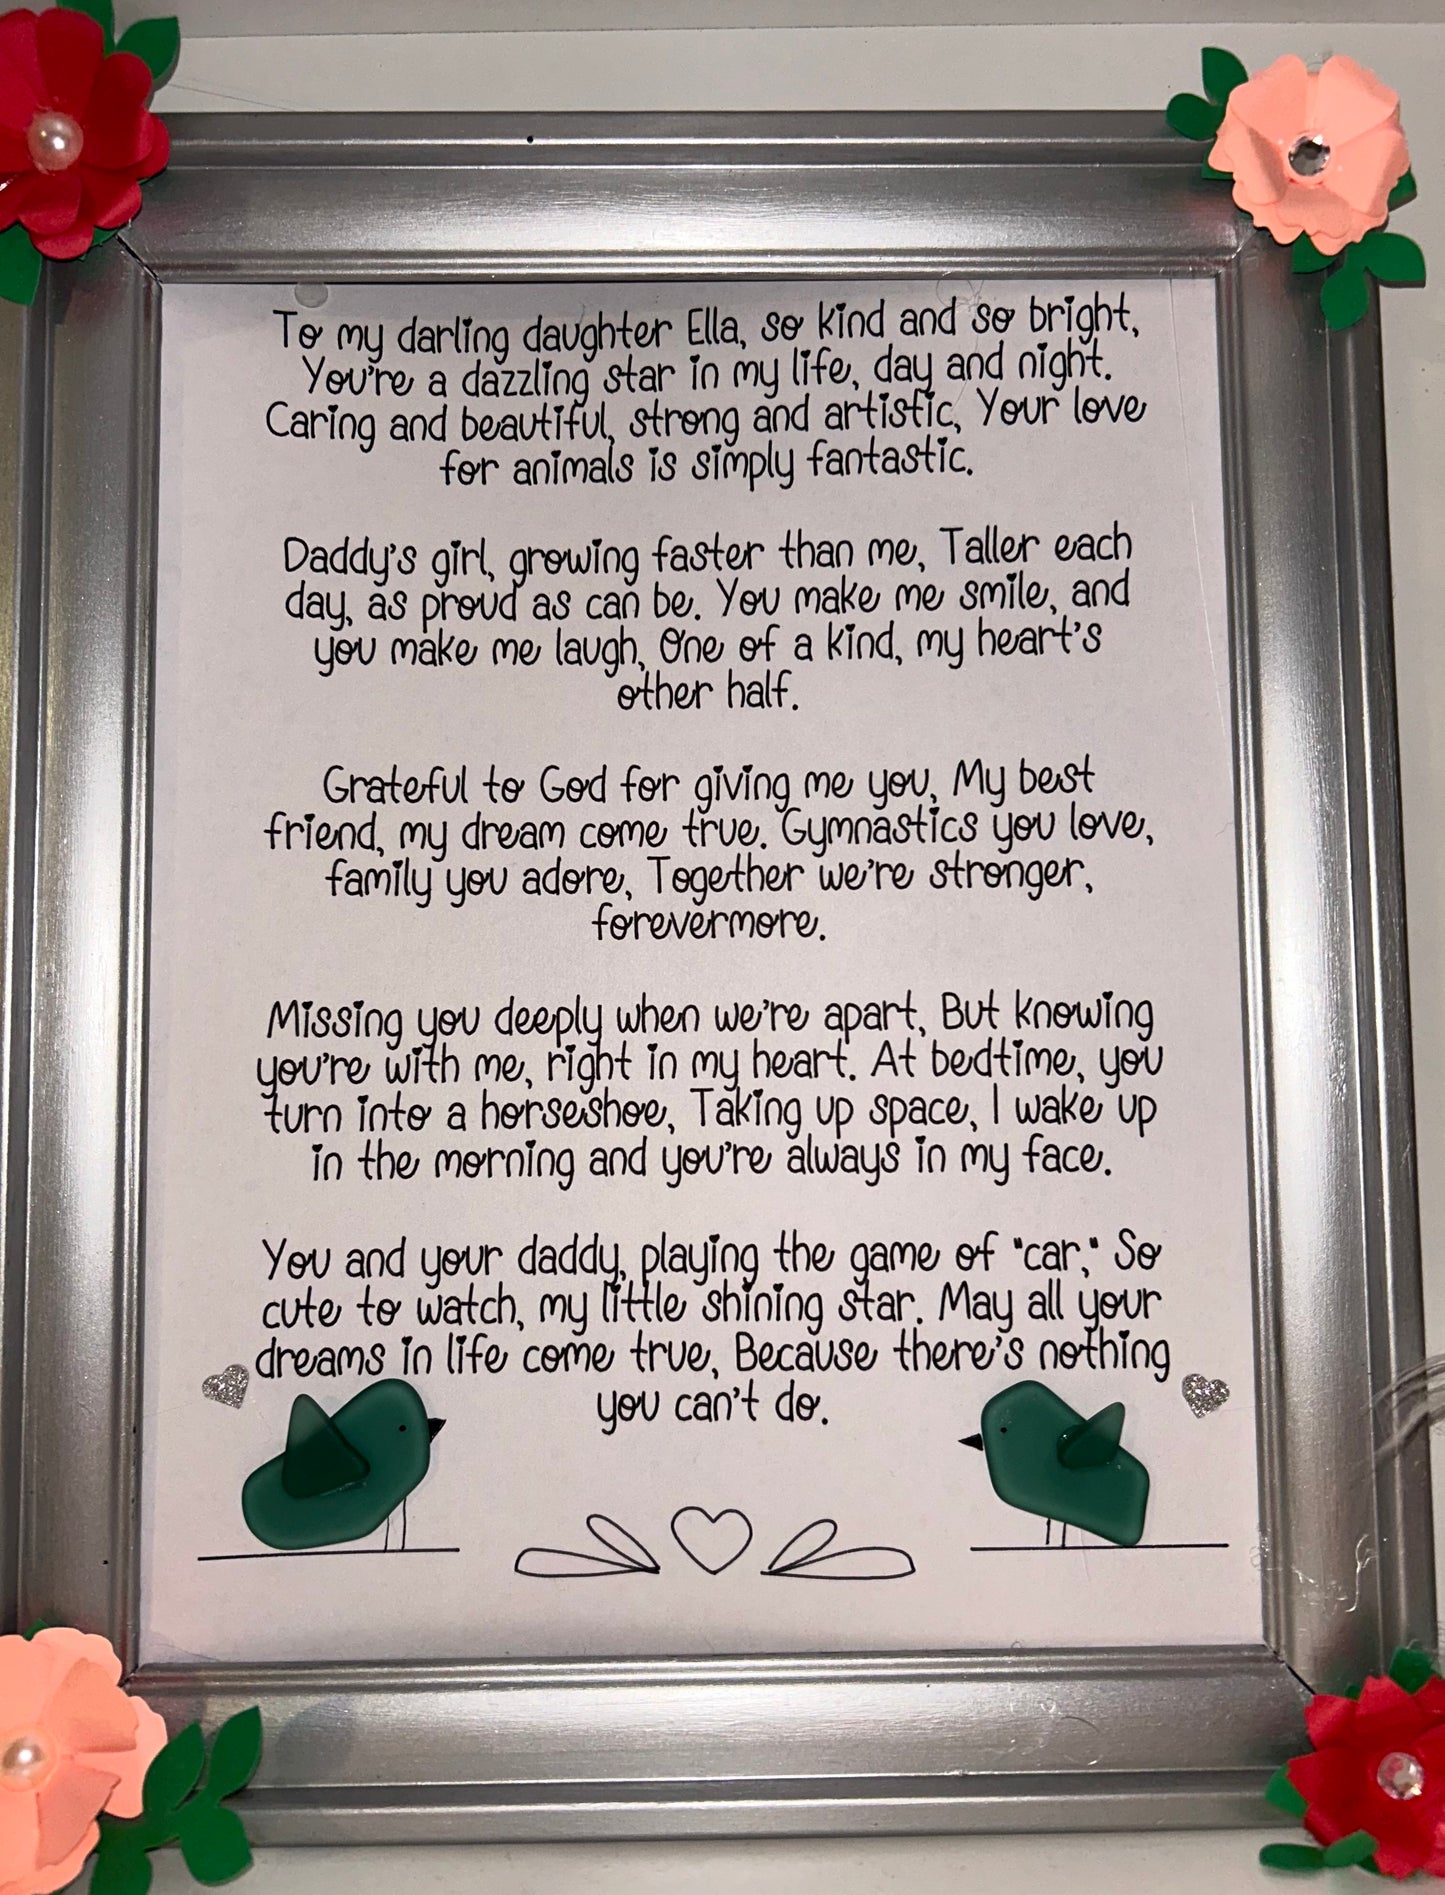 To my darling daughter Ella, so kind and so bright,
You're a dazzling star in my life, day and night.
Caring and beautiful, strong and artistic, Your love
for animals is simply fantastic.
Daddy's girl, growing faster than me, Taller each
day, as proud as can be. You make me smile, and
you make me laugh, One of a kind, my heart's
other half.
Grateful to God for giving me you, My best
friend, my dream come true. Gymnastics you love,
family you adore, Together we're stronger,
forevermore.
Missing you deeply when we're apart, But knowing
you're with me, right in my heart. At bedtime, you
turn into a horseshoe, Taking up space, I wake up
in the morning and you're always in my face.
You and your daddy, playing the game of "car," So
cute to watch, my little shining star. May all your
dreams in life come true, Because there's nothing
you can't do.